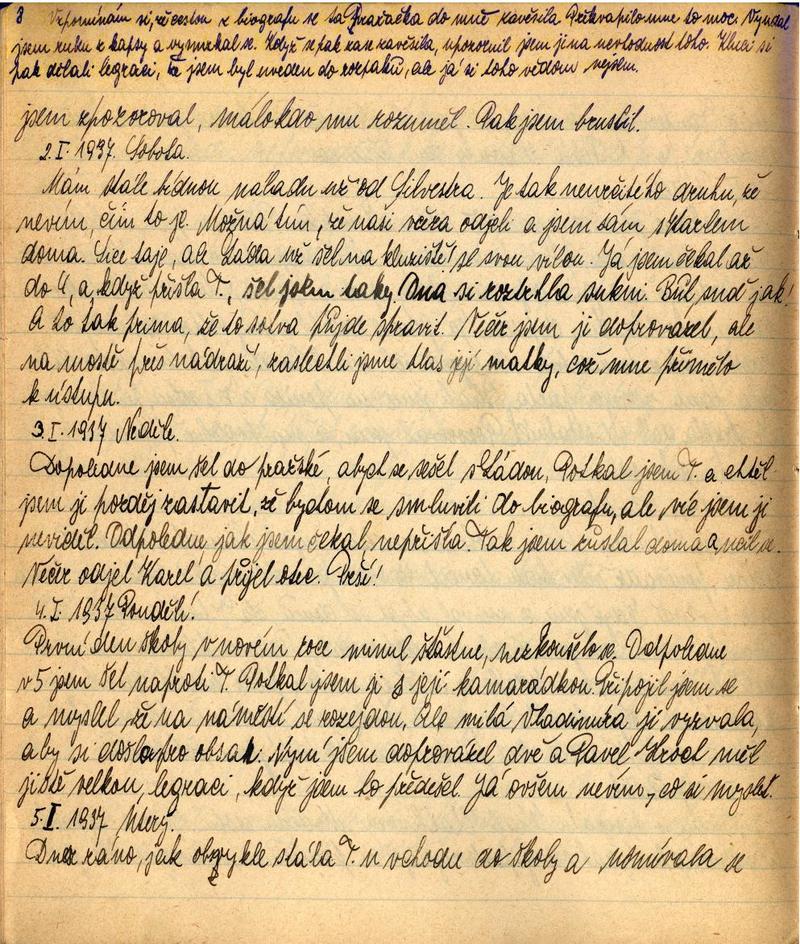 8 Vzpomínám si, že cestou z biografu se ta Pražačka do mně zavěsila. Překvapilo mne to moc. Vyndal
jsem ruku z kapsy a vysmrkal se. Když se pak zas zavěsila, upozornil jsem ji na nevhodnost toho. Kluci si
pak dělali legraci, že jsem byl uveden do rozpaků, ale já si toho vědom nejsem.
jsem zpozoroval, málokdo mu rozuměl. Pak jsem bruslil.
2.I. 1937. Sobota.
Mám stále bídnou náladu už od Silvestra. Je tak neurčitého druhu, že
nevím, čím to je. Možná tím, že naši včera odjeli a jsem sám s Karlem
doma. Sice taje, ale Láďa už šel na kluziště se svou vílou. Já jsem čekal až
do 4, a když přišla T., šel jsem taky. Dna si roztrhla sukni. Bůh suď jak!
A to tak prima, že to sotva půjde spravit. Večer jsem ji doprovázel, ale
na mostě přes nádraží, zaslechli jsme hlas její matky, což mne přimělo
k ústupu.
3.I. 1937 Neděle.
Dopoledne jsem šel do pražské, abych se sešel s Láďou. Potkal jsem T. a chtěl
jsem ji později zastavit, že bychom se smluvili do biografu, ale víc jsem ji
neviděl. Odpoledne jak jsem čekal nepřišla. Tak jsem zůstal doma a učil se.
Večer odjel Karel a přijel otec. Prší!
4.I. 1937 Pondělí.
První den školy v novém roce minul šťastně, nezkoušelo se. Odpoledne
v 5 jsem šel naproti T. Potkal jsem ji s její kamarádkou. Připojil jsem se
a myslel, že na náměstí se rozejdou. Ale milá Vladimíra ji vyzvala,
aby si došla pro obsah. Nyní jsem doprovázel dvě a Pavel měl
jistě velkou legraci, když jsem to předešel. Já ovšem nevím, co si myslet.
5.I. 1937 Úterý.
Dnes ráno, jak obvykle stála T. u vchodu do školy a usmívala se